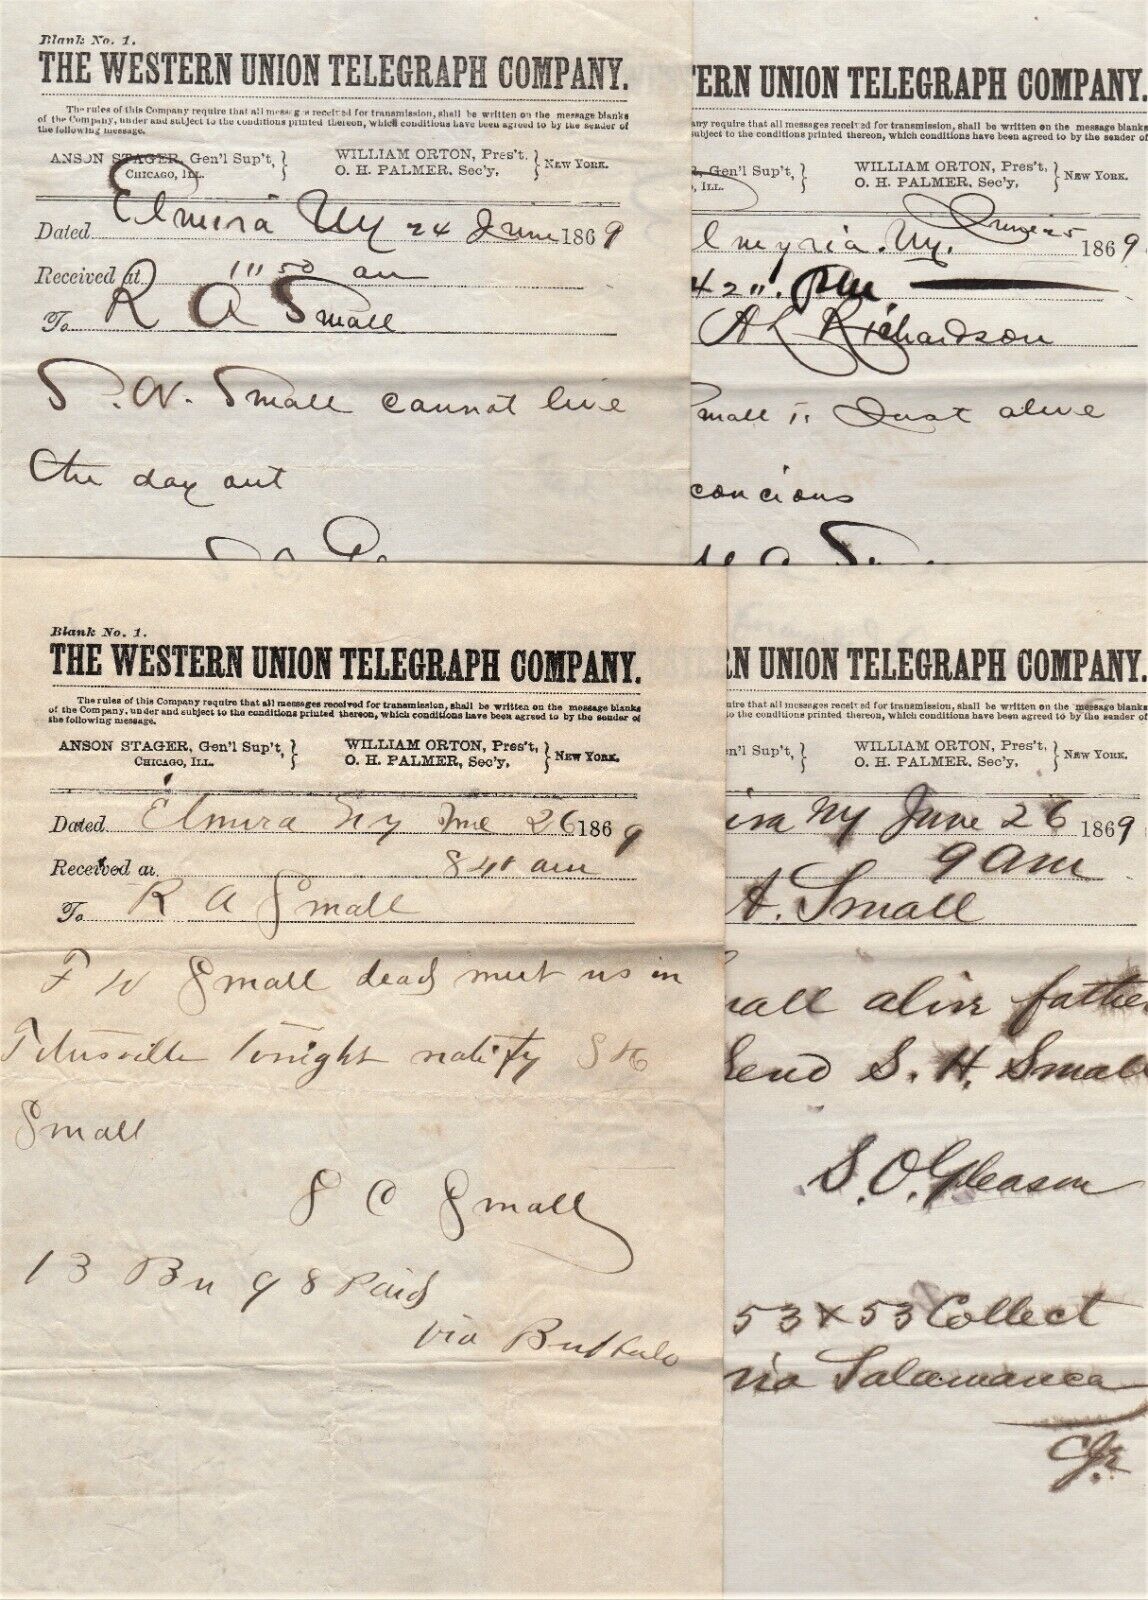 Blank No. 1.
THE WESTERN UNION TELEGRAPH COMPANY.
The rules of this Company require that all messages received for transmission, shall be written on the message blanks
of the Company, under and subject to the conditions printed thereon, which conditions have been agreed to by the sender of
the following message.
ANSON STAGER, Gen'l Sup't,
CHICAGO, ILL.
WILLIAM ORTON, Pres't.
O. H. PALMER, Sec'y,
NEW YORK.
Dated Elmira Ny 24 June 1869
Received at 11"50 am
To R A Small
Small cannot live
the day out
TERN UNION TELEGRAPH COMPANY.
any require that all messages received for transmission, shall be written on the message blanks
subject to the conditions printed thereon, which conditions have been agreed to by the sender of
Gen'l Sup't,
, ILL.
WILLIAM ORTON, Pres't,
O. H. PALMER, Sec'y,
NEW YORK.
lmyria. Ny. 1869
42". PM
A L Richardson
mall is Just alive
concious
Blank No. 1.
THE WESTERN UNION TELEGRAPH COMPANY.
The rules of this Company require that all messages received for transmission, shall be written on the message blanks
of the Company, under and subject to the conditions printed thereon, which conditions have been agreed to by the sender of
the following message.
ANSON STAGER, Gen'l Sup't,
CHICAGO, ILL.
WILLIAM ORTON, Pres't,
O. H. PALMER, Sec'y,
NEW YORK.
Dated Elmira Ny June 26 1869
Received at 840 am
To R A Small
F W Small dead meet us in
Titusville tonight notify S H
Small
S O Small
13 Bu 98 Paid
via Buffalo
RN UNION TELEGRAPH COMPANY.
uire that all messages received for transmission, shall be written on the message blanks
to the conditions printed thereon, which conditions have been agreed to by the sender of
en'l Sup't,
WILLIAM ORTON, Pres't,
O. H. PALMER, Sec'y,
NEW YORK.
ira Ny June 26 1869
9 am
A. Small
mall alive father
Send S. H. Small
S. O. Gleason
53 x 53 Collect
via Salamanca